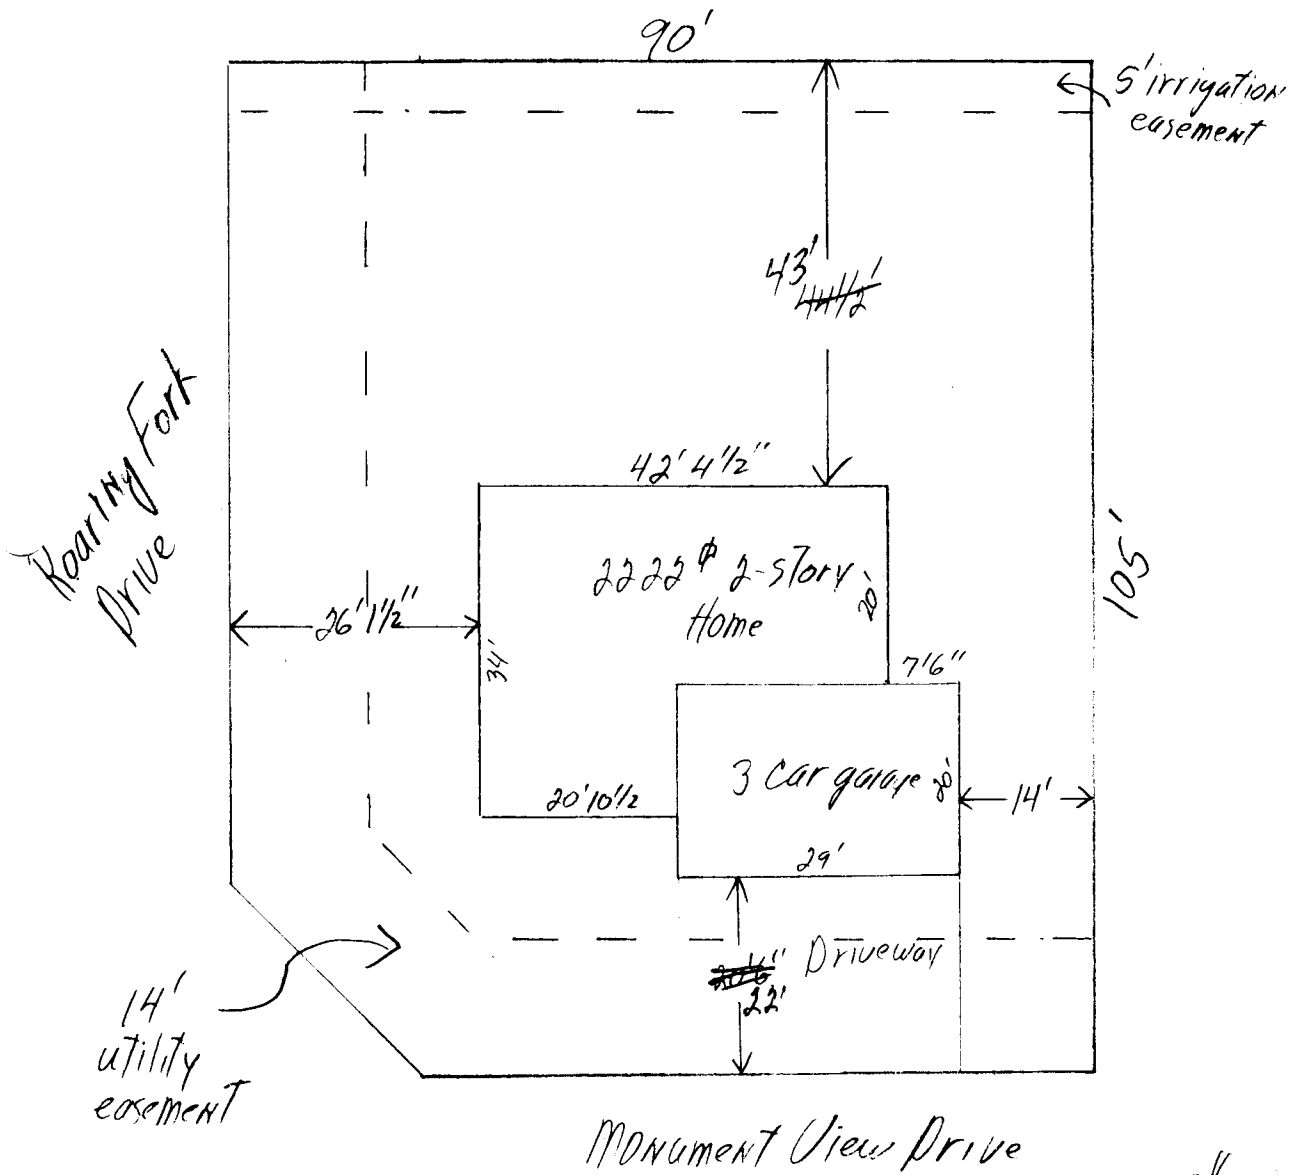 90'
5' irrigation
easement
43'
44 1/2'
Roaring Fork
Drive
42' 4 1/2"
2222 ⌀ 2-story
Home
20'
105'
26' 1 1/2"
34'
7'6"
3 Car garage
20'
14'
20' 10 1/2
29'
Driveway
20'6"
22'
14'
utility
easement
Monument View Drive